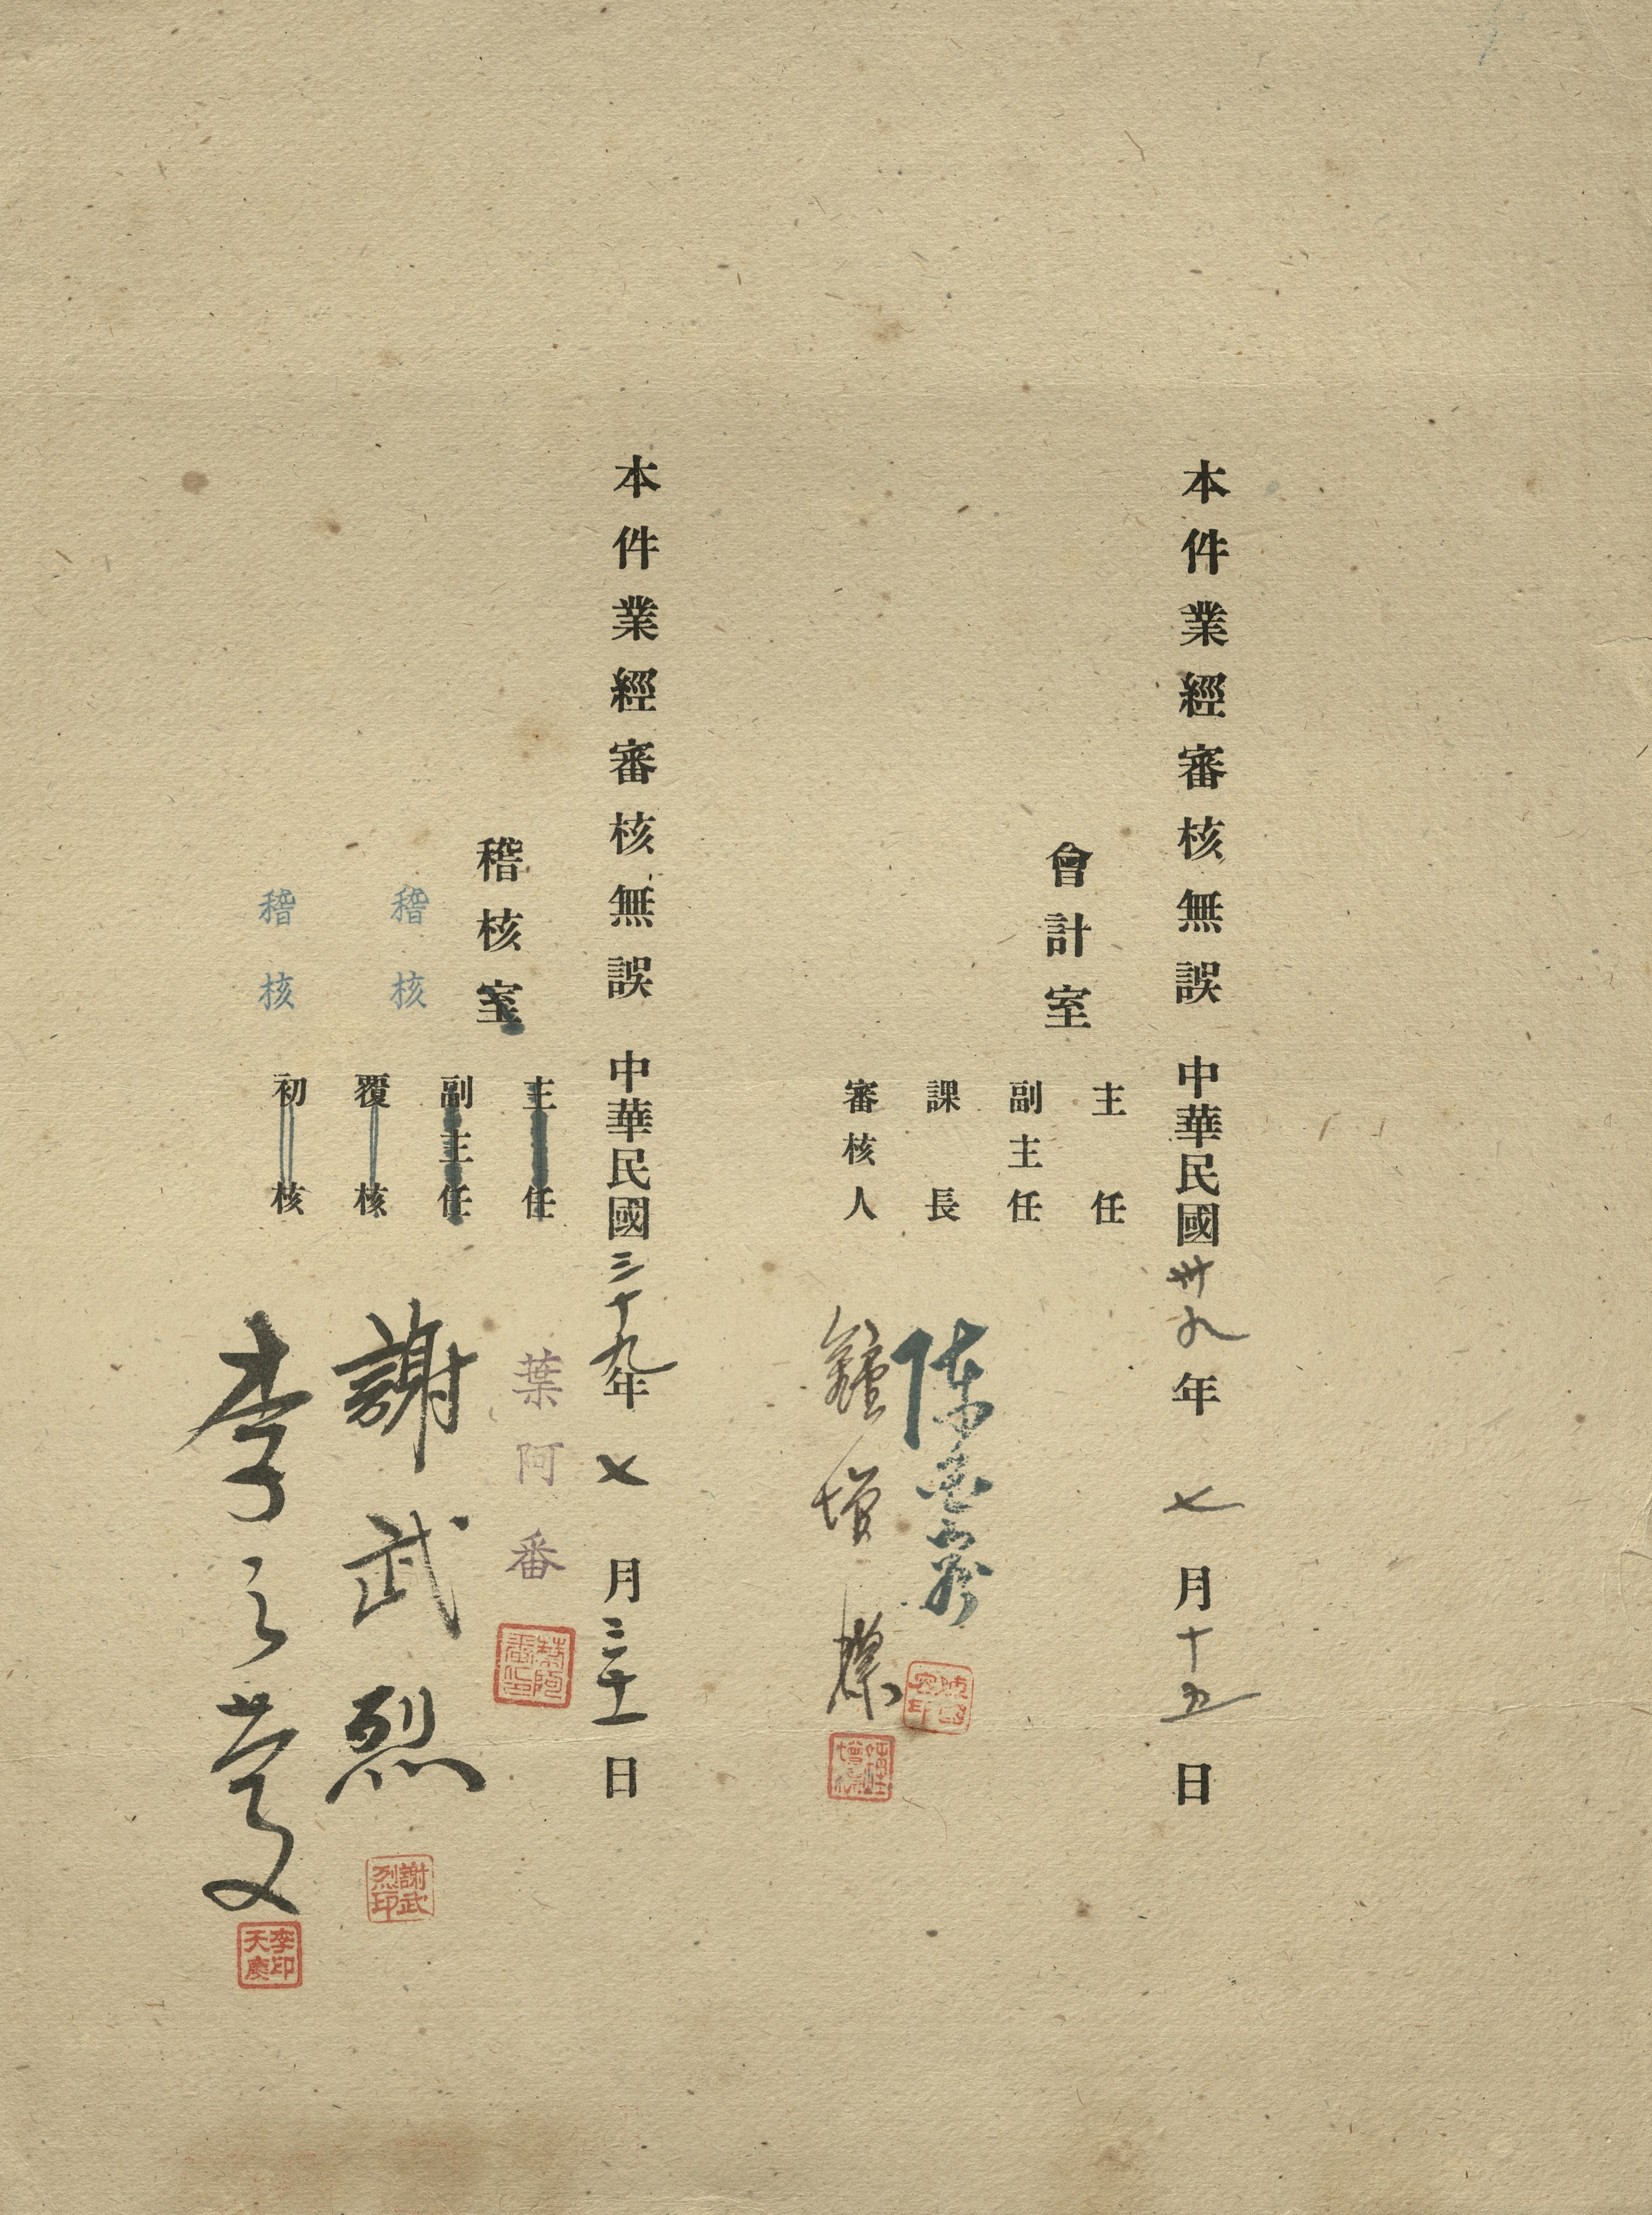 本件業經審核無誤 中華民國卅九年七月十五日
會計室
主任
副主任
課長
審核人 鐘增
本件業經審核無誤 中華民國三十九年七月三十一日
稽核室
主任 葉阿番
副主任
稽核
覆核 謝武烈
謝武烈印
稽核
初核 李天慶
李印天慶